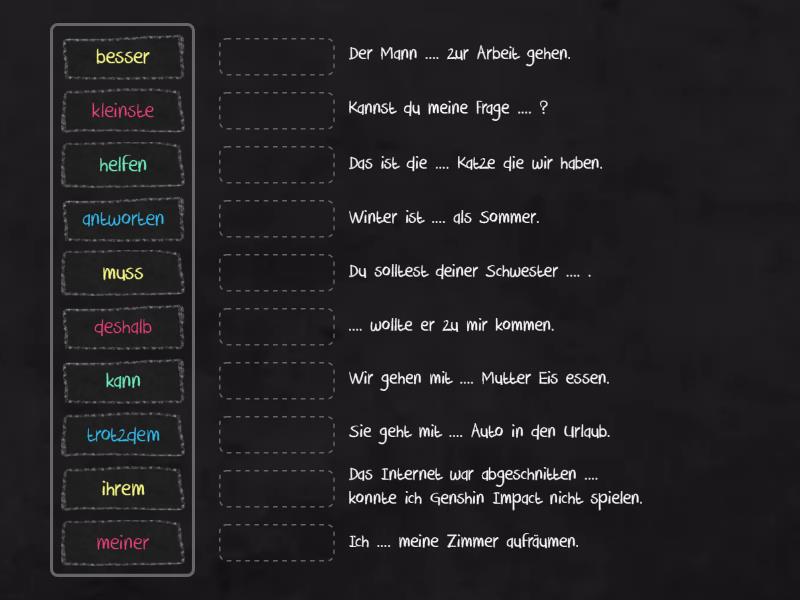 besser
Der Mann .... zur Arbeit gehen.
kleinste
Kannst du meine Frage .... ?
helfen
Das ist die .... Katze die wir haben.
antworten
Winter ist .... als Sommer.
muss
Du solltest deiner Schwester .... .
deshalb
.... wollte er zu mir kommen.
kann
Wir gehen mit .... Mutter Eis essen.
trotzdem
Sie geht mit .... Auto in den Urlaub.
ihrem
Das Internet war abgeschnitten ....
konnte ich Genshin Impact nicht spielen.
meiner
Ich .... meine Zimmer aufräumen.